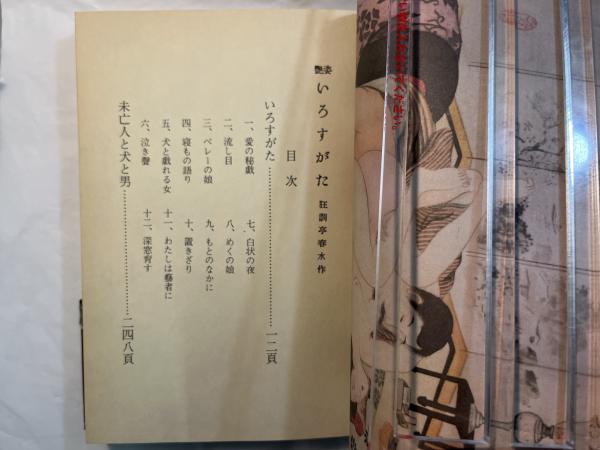 艶姿 いろすがた 狂訓亭春水作
目次
いろすがた……………………一二頁
一、愛の秘戯
二、流し目
三、ベレーの娘
四、寝もの語り
五、犬と戯れる女
六、泣き聲
七、白状の夜
八、めくの娘
九、もとのなかに
十、置きざり
十一、わたしは藝者に
十二、深窓背す
未亡人と犬と男……………………二四八頁
ください。